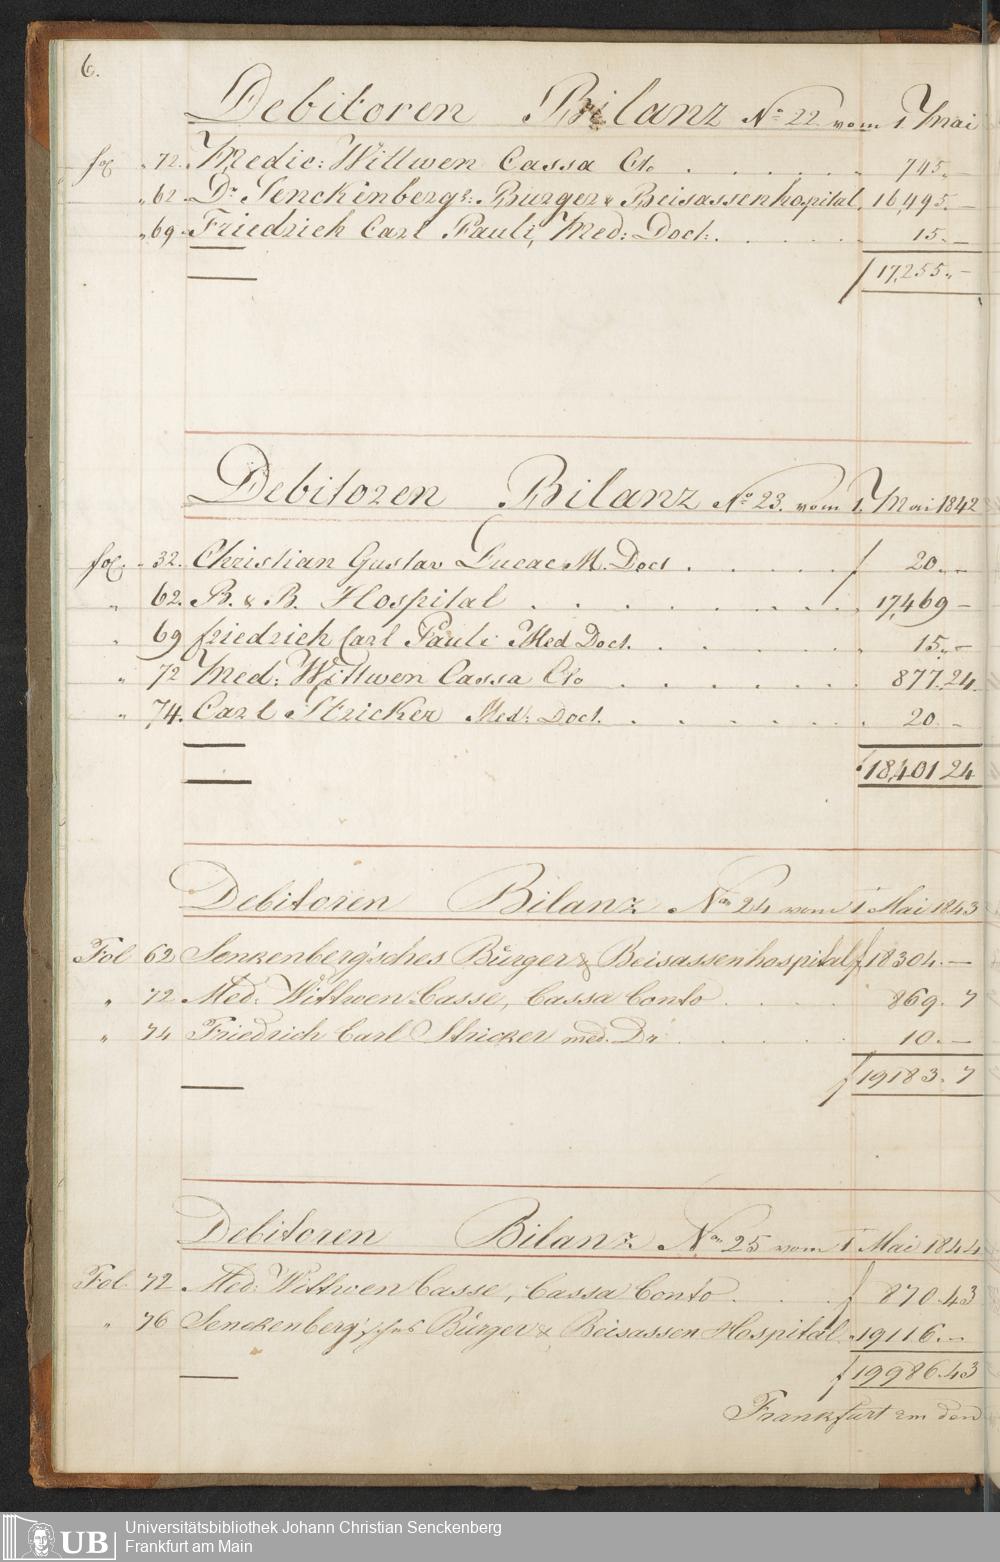 6.
Debitoren Bilanz No 22. vom 1. Mai
fol. " 72. Medic: Wittwen Cassa Cto. . . . . . . 745. —
" 62. Dr. Senckinbergs: Bürger & Beisassenhospital, 16,495. —
" 69. Friedrich Carl Pauli, Med: Doct: . . . . . 15. —
f 17,255. " —
Debitoren Bilanz No 23. vom 1. Mai 1842
fol. " 32. Christian Gustav Lucae M. Doct . . . . . f 20. " —
" 62. B. & B. Hospital . . . . . . . . 17,469 —
" 69 Friedrich Carl Pauli Med Doct. . . . . . 15. " —
" 72 Med: Wittwen Cassa Cto . . . . . . 877. 24.
" 74. Carl Stricker Med: Doct. . . . . . . . 20. —
f 18,401 24
Debitoren Bilanz No 24 vom 1 Mai 1843
Fol 62 Senkenberg'sches Bürger & Beisassenhospital f 18304. —
" 72 Med: Wittwen Casse, Cassa Conto . . . . 869. 7
" 74 Friedrich Carl Stricker med. Dr . . . . . 10. —
f 19183. 7
Debitoren Bilanz No 25 vom 1 Mai 1844
Fol. 72 Med: Wittwen Casse, Cassa Conto . . . . f 870. 43
" 76 Senckenberg'sches Bürger & Beisassen Hospital " 19116. —
f 19986. 43
Frankfurt am den
UB
Universitätsbibliothek Johann Christian Senckenberg
Frankfurt am Main